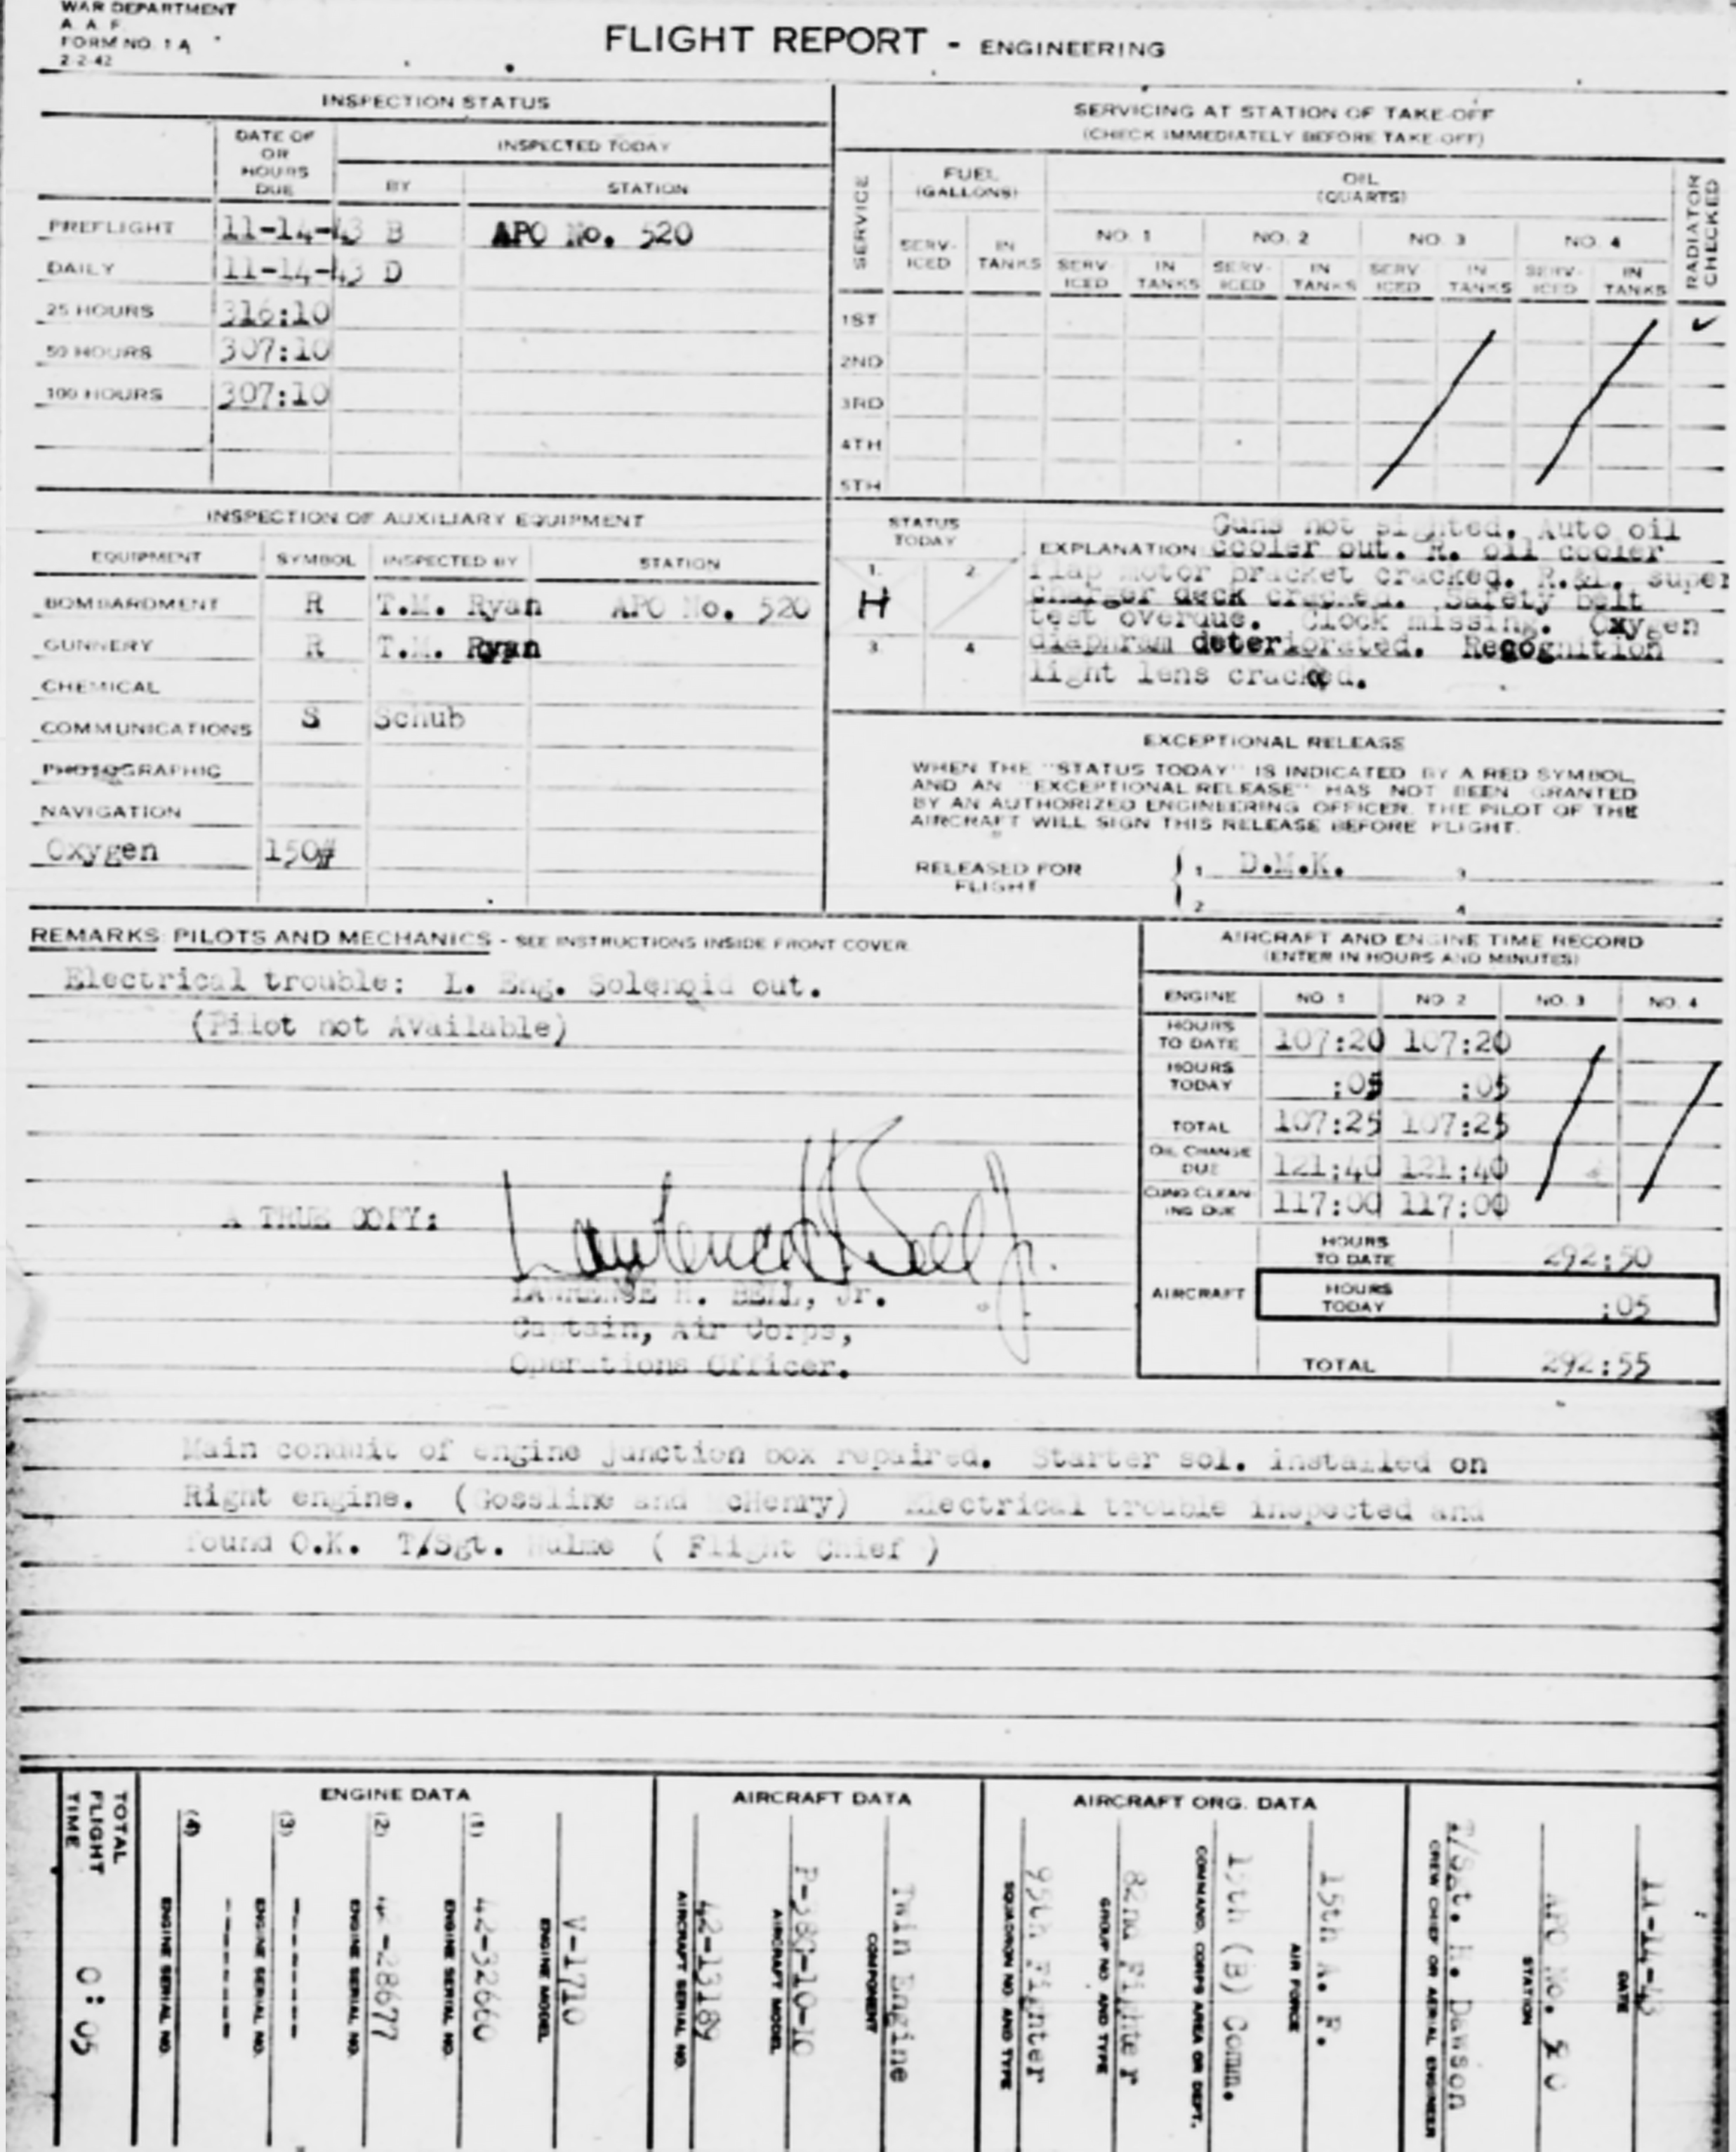 WAR DEPARTMENT
A. A. F.
FORM NO. 1 A
2-2-42
FLIGHT REPORT - ENGINEERING
INSPECTION STATUS
DATE OF OR HOURS DUE
INSPECTED TODAY
BY STATION
PREFLIGHT 11-14-43 B APO No. 520
DAILY 11-14-43 D
25 HOURS 316:10
50 HOURS 307:10
100 HOURS 307:10
SERVICING AT STATION OF TAKE-OFF
(CHECK IMMEDIATELY BEFORE TAKE-OFF)
SERVICE
FUEL (GALLONS)
OIL (QUARTS)
RADIATOR CHECKED
NO. 1 NO. 2 NO. 3 NO. 4
SERV-ICED IN TANKS SERV-ICED IN TANKS SERV-ICED IN TANKS SERV ICED IN TANKS SERV-ICED IN TANKS
1ST ✓
2ND
3RD
4TH
5TH
INSPECTION OF AUXILIARY EQUIPMENT
EQUIPMENT SYMBOL INSPECTED BY STATION
BOMBARDMENT R T.M. Ryan APO No. 520
GUNNERY R T.M. Ryan
CHEMICAL
COMMUNICATIONS S Schub
PHOTOGRAPHIC
NAVIGATION
Oxygen 150#
STATUS TODAY
1. 2.
H
3. 4
Guns not sighted. Auto oil
EXPLANATION cooler out. R. oil cooler
flap motor bracket cracked. R.&L. super
charger deck cracked. Safety belt
test overdue. Clock missing. Oxygen
diaphram deteriorated. Recognition
light lens cracked.
EXCEPTIONAL RELEASE
WHEN THE "STATUS TODAY" IS INDICATED BY A RED SYMBOL
AND AN "EXCEPTIONAL RELEASE" HAS NOT BEEN GRANTED
BY AN AUTHORIZED ENGINEERING OFFICER. THE PILOT OF THE
AIRCRAFT WILL SIGN THIS RELEASE BEFORE FLIGHT.
RELEASED FOR FLIGHT 1. D.M.K. 3.
2. 4.
REMARKS: PILOTS AND MECHANICS - SEE INSTRUCTIONS INSIDE FRONT COVER
Electrical trouble: L. Eng. Solenoid out.
(Pilot not Available)
A TRUE COPY:
Lawrence H Bell Jr.
LAWRENSE H. BELL, Jr.
Captain, Air Corps,
Operations Officer.
AIRCRAFT AND ENGINE TIME RECORD
(ENTER IN HOURS AND MINUTES)
ENGINE NO. 1 NO. 2 NO. 3 NO. 4
HOURS TO DATE 107:20 107:20
HOURS TODAY :05 :05
TOTAL 107:25 107:25
OIL CHANGE DUE 121:40 121:40
CUNO CLEAN-ING DUE 117:00 117:00
AIRCRAFT
HOURS TO DATE 292:50
HOURS TODAY :05
TOTAL 292:55
Main conduit of engine junction box repaired. Starter sol. installed on
Right engine. (Gossline and McHenry) Electrical trouble inspected and
found O.K. T/Sgt. Hulme ( Flight Chief )
TOTAL FLIGHT TIME 0:05
ENGINE DATA
(4) ENGINE SERIAL NO. ------
(3) ENGINE SERIAL NO. ------
(2) ENGINE SERIAL NO. -28677
(1) ENGINE SERIAL NO. 42-32660
ENGINE MODEL V-1710
AIRCRAFT DATA
AIRCRAFT SERIAL NO. 42-13189
AIRCRAFT MODEL P-38G-10-LO
COMPONENT Twin Engine
AIRCRAFT ORG. DATA
SQUADRON NO AND TYPE 95th Fighter
GROUP NO. AND TYPE 82nd Fighter
COMMAND, CORPS AREA OR DEPT. 15th (B) Comm.
AIR FORCE 15th A. F.
CREW CHIEF OR AERIAL ENGINEER T/Sgt. H. Dawson
STATION APO No. 520
DATE 11-14-43